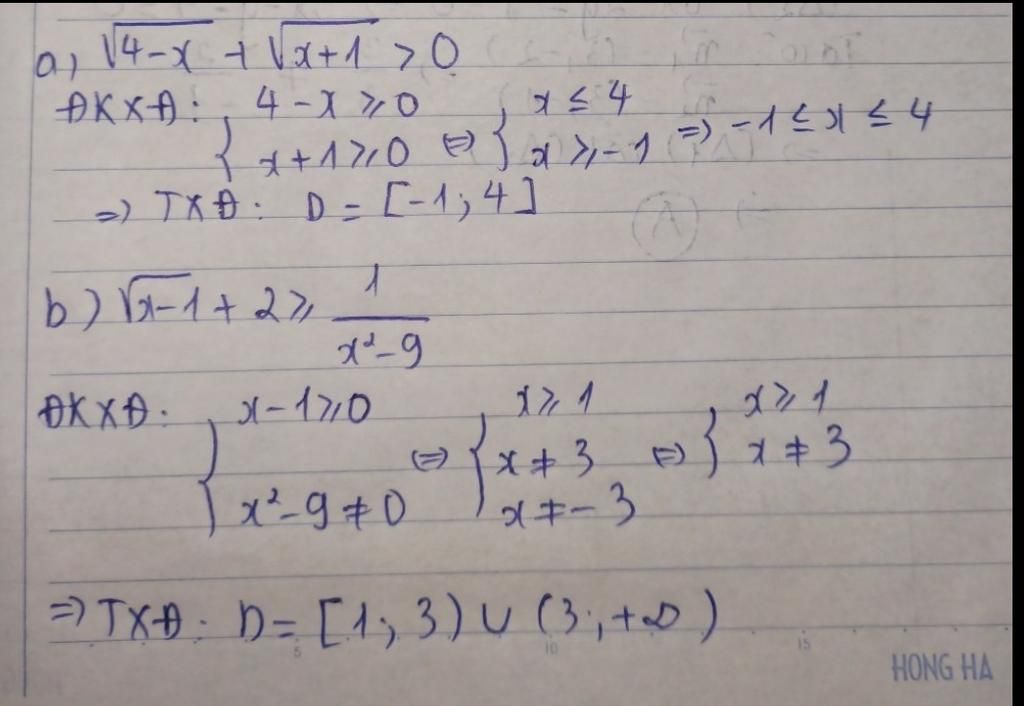 a) √(4-x) + √(x+1) > 0
ĐKXĐ: { 4-x ≥ 0 ; x+1 ≥ 0 ⇔ { x ≤ 4 ; x ≥ -1 => -1 ≤ x ≤ 4
=> TXĐ: D = [-1; 4]
b) √(x-1) + 2 ≥ 1/(x²-9)
ĐKXĐ: { x-1 ≥ 0 ; x²-9 ≠ 0 ⇔ { x ≥ 1 ; x ≠ 3 ; x ≠ -3 ⇔ { x ≥ 1 ; x ≠ 3
=> TXĐ: D = [1; 3) ∪ (3; +∞)
5 10 15
HONG HA